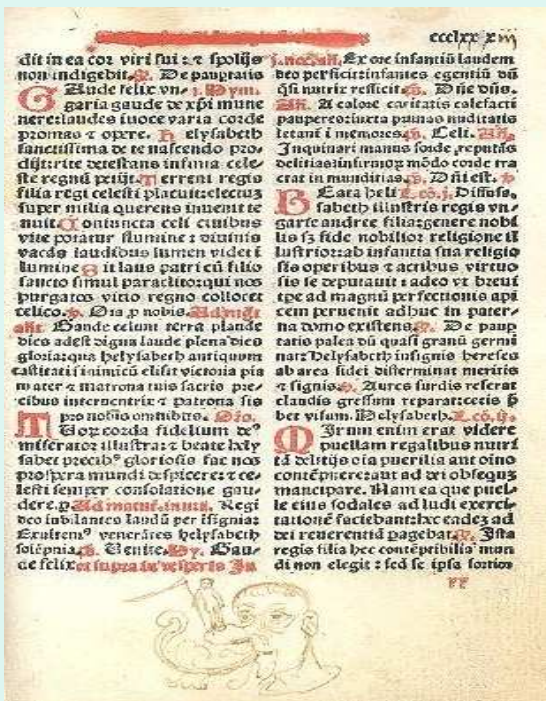 ccclxx x iii
dit in ea cor viri sui: et spolijs
non indigebit. De paupratis
Gaude felix vn- j. Hym.
garia gaude de xpi mune
nere: laudes in voce varia corde
promas et opere. H elysabeth
sanctissima de te nascendo pro-
dijt: rite detestans infima cele-
ste regnū petijt. Terreni regis
filia regi celesti placuit: electus
super milia querens invenit te
nuit. Coniuncta celi civibus
vite potatur flumine: et divinis
vacās laudibus lumen videt ī
lumine Sit laus patri cū filio
sancto simul paraclito: qui nos
purgatos vitio regno collocet
celico. Ora p nobis. Ad mgt
añ. Gaude celum terra plaude
dies adest digna laude plena dies
gloria: qua helysabeth antiquum
castitati inimicū elisit victoria pia
mater et matrona tuis sacris pre-
cibus et patrona sis
pro nobis omnibus. Orō.
Tuorum corda fidelium deꝰ
miserator illustra: et beate hely
sabet precibꝰ gloriosis fac nos
prospera mundi despicere: et ce-
lesti semper consolatione gau-
dere. p Ad matut. invit. Regi
deo iubilantes laudū per isignia:
Exuirenꝰ venerāres helysabeth
solēpnia. Venite. Hy. Gau-
de felix ut supra in vesperis In
j. noc. añ. Ex ore infantiū laudem
deo perficit: infantes egentiū dū
q̄si nutrix reficit. Dn̄e dn̄s.
Añ. A calore caritatis calefacti
pauperes: iuxta pannas nuditatis
letant ī memores. Celi. Añ.
Inquinari manus sorde reputās
delitias: infirmos mōdo corde tra
ctat in munditias. Dn̄i est.
Beata heli L cō. j. Diffose.
sabeth illustris regis vn-
garie andree filia: genere nobi
lis sꝫ fide nobilior religione il
lustrior: ab infantia sua religio
sis operibus et actibus virtuo
sis se deputavit: adeo vt brevi
tpe ad magnū perfectionis api
cem pervenit adhuc in pater-
na domo existens. De paup
tatis palea dū quasi granū germi
nat: Helysabeth insignis hereses
ab area fidei disterminat meritis
et signis. Aures surdis reserat
claudis gressum reparat: cecis p̄
bet visum. Helysabeth. L. cō. ij.
Mirum enim erat videre
puellam regalibus nutri
tā delitijs oīa puerilia aut oīno
contēpnere: aut ad dei obsequiū
mancipare. Nam ea que puel-
le eius sodales ad ludi exerci-
tationē faciebant: hec eadeꝫ ad
dei reverentiā pagebat. Ista
regis filia hec contēptibilia mun
di non elegit: sed se ipsa fortior